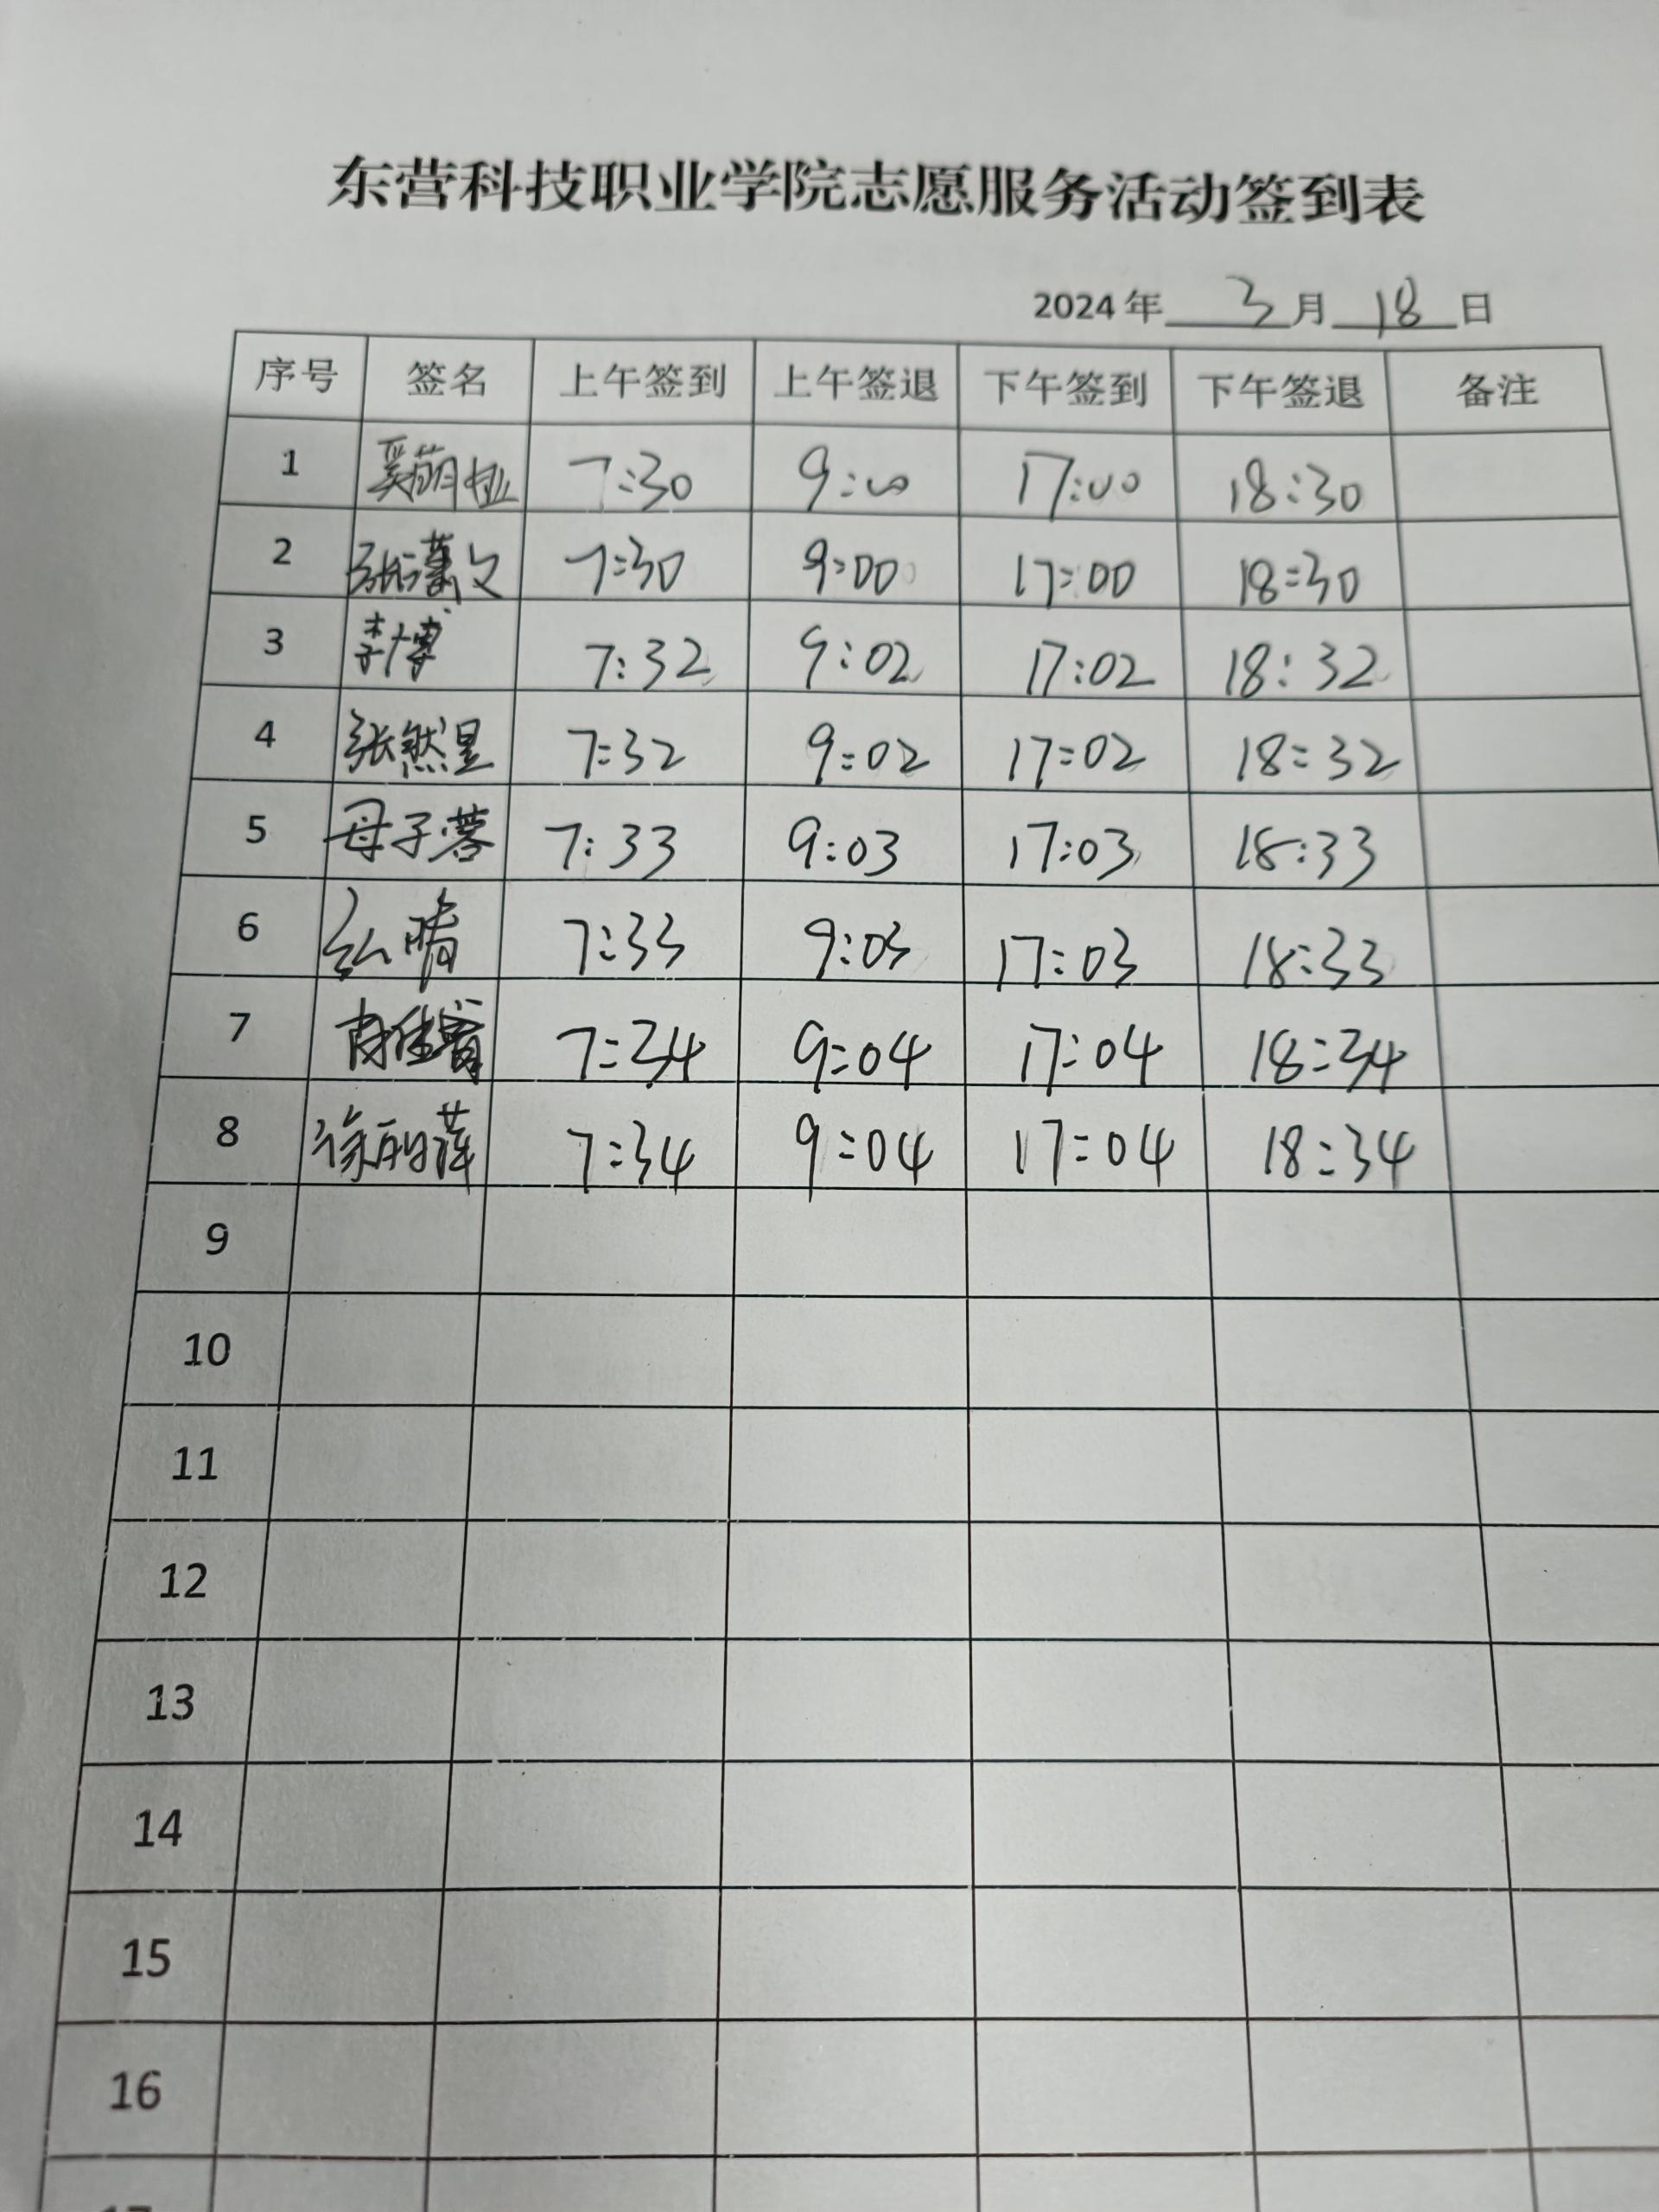 东营科技职业学院志愿服务活动签到表
2024年 3 月 18 日
序号 签名 上午签到 上午签退 下午签到 下午签退 备注
1 7:30 9:00 17:00 18:30
2 7:30 9:00 17:00 18:30
3 李博 7:32 9:02 17:02 18:32
4 张然星 7:32 9:02 17:02 18:32
5 母子蓉 7:33 9:03 17:03 18:33
6 7:33 9:03 17:03 18:33
7 7:34 9:04 17:04 18:34
8 7:34 9:04 17:04 18:34
9
10
11
12
13
14
15
16
17